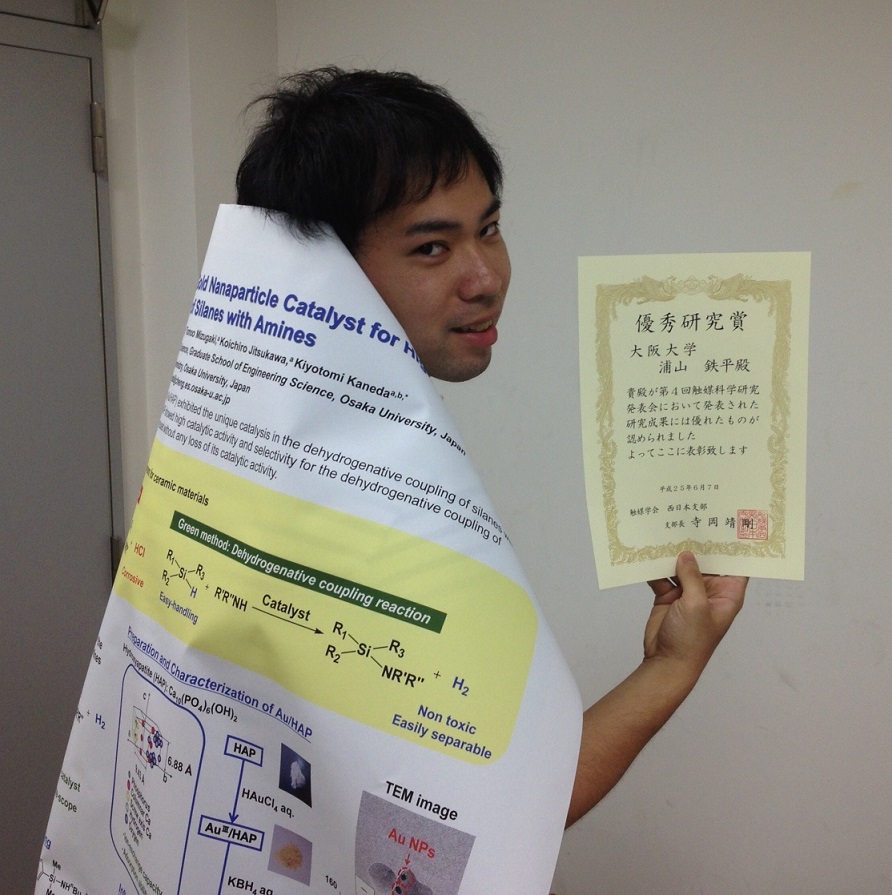 old Nanaparticle Catalyst for H
f Silanes with Amines
Mizugaki,ᵃ Koichiro Jitsukawa,ᵃ Kiyotomi Kanedaᵃ,ᵇ,*
Graduate School of Engineering Science, Osaka University, Japan
Osaka University, Japan
es.osaka-u.ac.jp
exhibited the unique catalysis in the dehydrogenative coupling of silanes
high catalytic activity and selectivity for the dehydrogenative coupling of
without any loss of its catalytic activity.
for ceramic materials
Green method: Dehydrogenative coupling reaction
+ HCl
Corrosive
R₁ R₃
Si
R₂ H
+ R'R"NH
Catalyst
Easy-handling
R₁ R₃
Si
R₂ NR'R"
+ H₂
Non toxic
Easily separable
Preparation and Characterization of Au/HAP
Hydroxyapatite (HAP): Ca₁₀(PO₄)₆(OH)₂
+ H₂
c
6.88 Å
b
HAP
HAuCl₄ aq.
Auᴵᴵᴵ/HAP
KBH₄ aq.
TEM image
Au NPs
160
優秀研究賞
大阪大学
浦山 鉄平殿
貴殿が第４回触媒科学研究
発表会において発表された
研究成果には優れたものが
認められました
よってここに表彰致します
平成２５年６月７日
触媒学会 西日本支部
支部長 寺岡靖剛